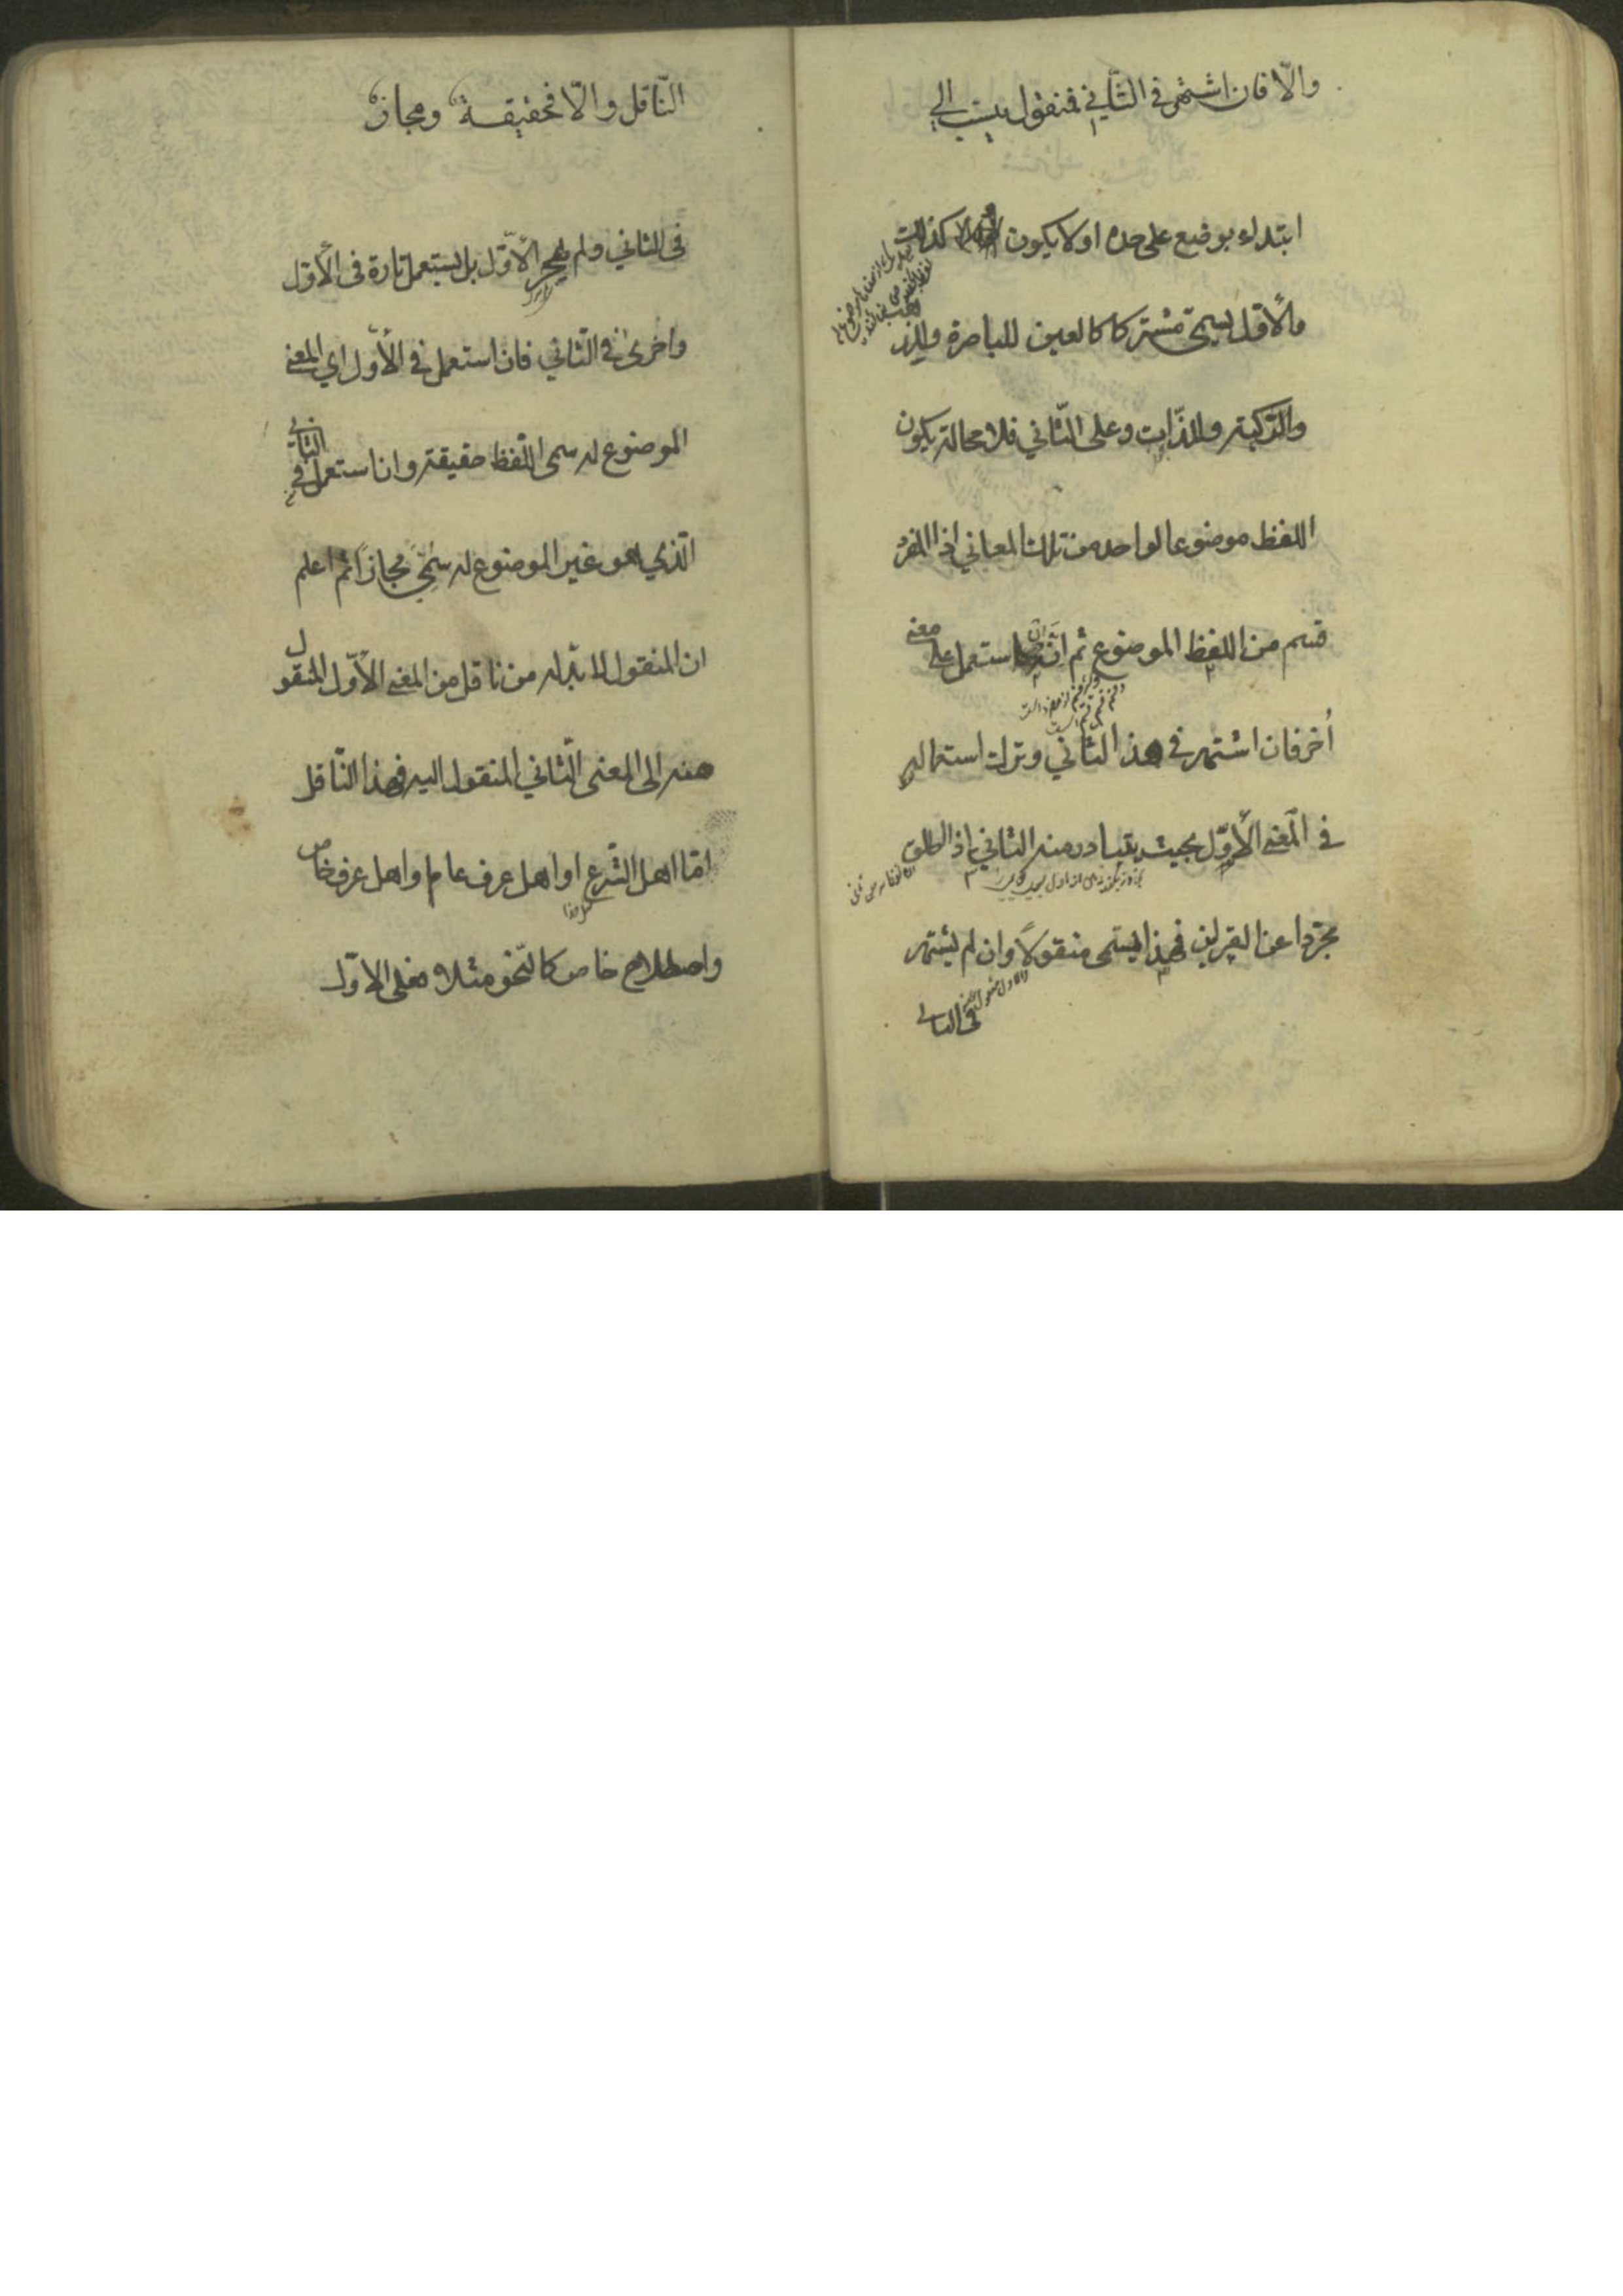 والّا فان اشتهر في الثّاني فمنقول ينسب الي
ابتداء بوضع على حده اولا يكون كذالت
والأوّل يسمّى مشتركا كالعين للباصرة والذ
والرّكبته والذّات وعلى الثّاني فلا محالة يكون
اللفظ موضوعا لواحد من تلك المعاني اذ المفرد
قسم من اللفظ الموضوع ثم انّ استعمل على معنى
أخر فان اشتهر في هذ الثّاني وترك استعماله
في المعنى الأوّل بحيث يتبادر منه الثاني اذ اطلق
مجرّدا عن القراين فهذا يسمّى منقولاً وان لم يشتهر
في الثاني
النّاقل والّا فحقيقة ومجاز
في الثاني ولم يهجر الأوّل بل يستعمل تارة في الأوّل
واخرى في الثاني فان استعمل في الأوّل اي المعنى
الموضوع له سمى اللّفظ حقيقته وان استعمل في الثاني
الّذي هو غير الموضوع له سُمّي مجازاً ثم اعلم
ان المنقول لا بدّ له من ناقل من المعنى الأوّل المنقول
منه الى المعنى الثّاني المنقول اليه فهذا النّاقل
امّا اهل الشّرع او اهل عرف عام او اهل عرف خاص
واصطلاح خاص كالنّحو مثلا فعلى الاوّل